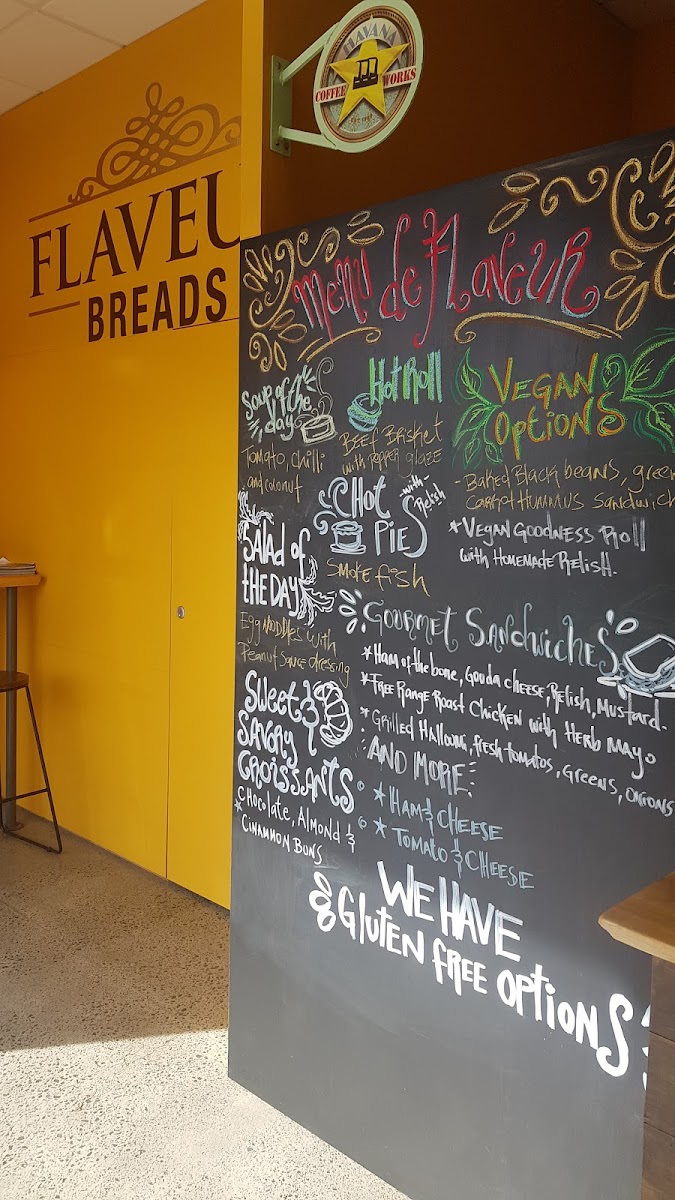 HAVANA
COFFEE WORKS
FLAVEU
BREADS
Menu de FLaveuR
Soup of the
day
Tomato, chilli
and coconut
Hot Roll
Beef Brisket
with Pepper glaze
VEGAN
OptionS
- Baked Black beans, green
carrot Hummus Sandwich
* Vegan Goodness Roll
with Homemade Relish.
Hot
PieS
-with-
Relish
Smoke fish
Salad of
THE DAY
Egg Noodles with
Peanut Sauce dressing
Gourmet SandwicheS
* Ham of the bone, Gouda cheese, Relish, Mustard.
* Free Range Roast Chicken with Herb Mayo
* Grilled Halloumi, fresh tomatos, Greens, Onions
AND MORE
* Ham & CHEESE
* Tomato & CHEESE
Sweet &
Savory
CroissantS
Chocolate, Almond &
* Cinammon Buns
WE HAVE
Gluten FREE optionS